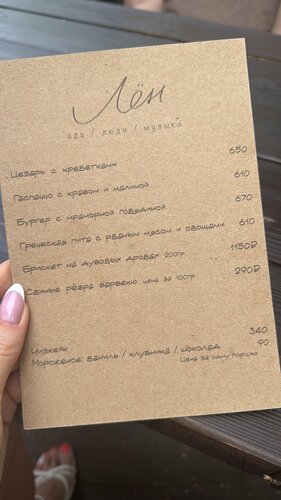 Лён
еда / люди / музыка
Цезарь с креветками 650
Гаспачо с крабом и малиной 610
Бургер с мраморной говядиной 670
Греческая пита с рваным мясом и овощами 610
Брискет на дубовых дровах 200гр 1150₽
Свиные рёбра барбекю, цена за 100гр 290₽
Чизкейк 340
Мороженое ваниль / клубника / шоколад 90
Цена за одну порцию